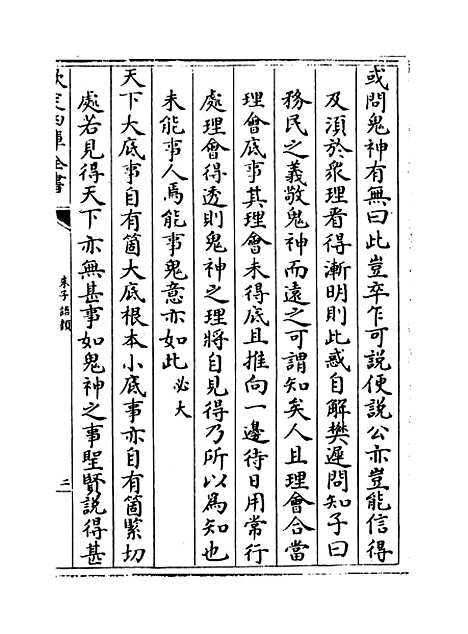 或問鬼神有無曰此豈卒乍可說便說公亦豈能信得
及湏於衆理看得漸明則此惑自解樊遲問知子曰
務民之義敬鬼神而遠之可謂知矣人且理會合當
理會底事其理會未得底且推向一邊待日用常行
處理會得透則鬼神之理將自見得乃所以為知也
未能事人焉能事鬼意亦如此必大
天下大底事自有箇大底根本小底事亦自有箇緊切
處若見得天下亦無甚事如鬼神之事聖賢說得甚
欽定四庫全書
朱子語類
二